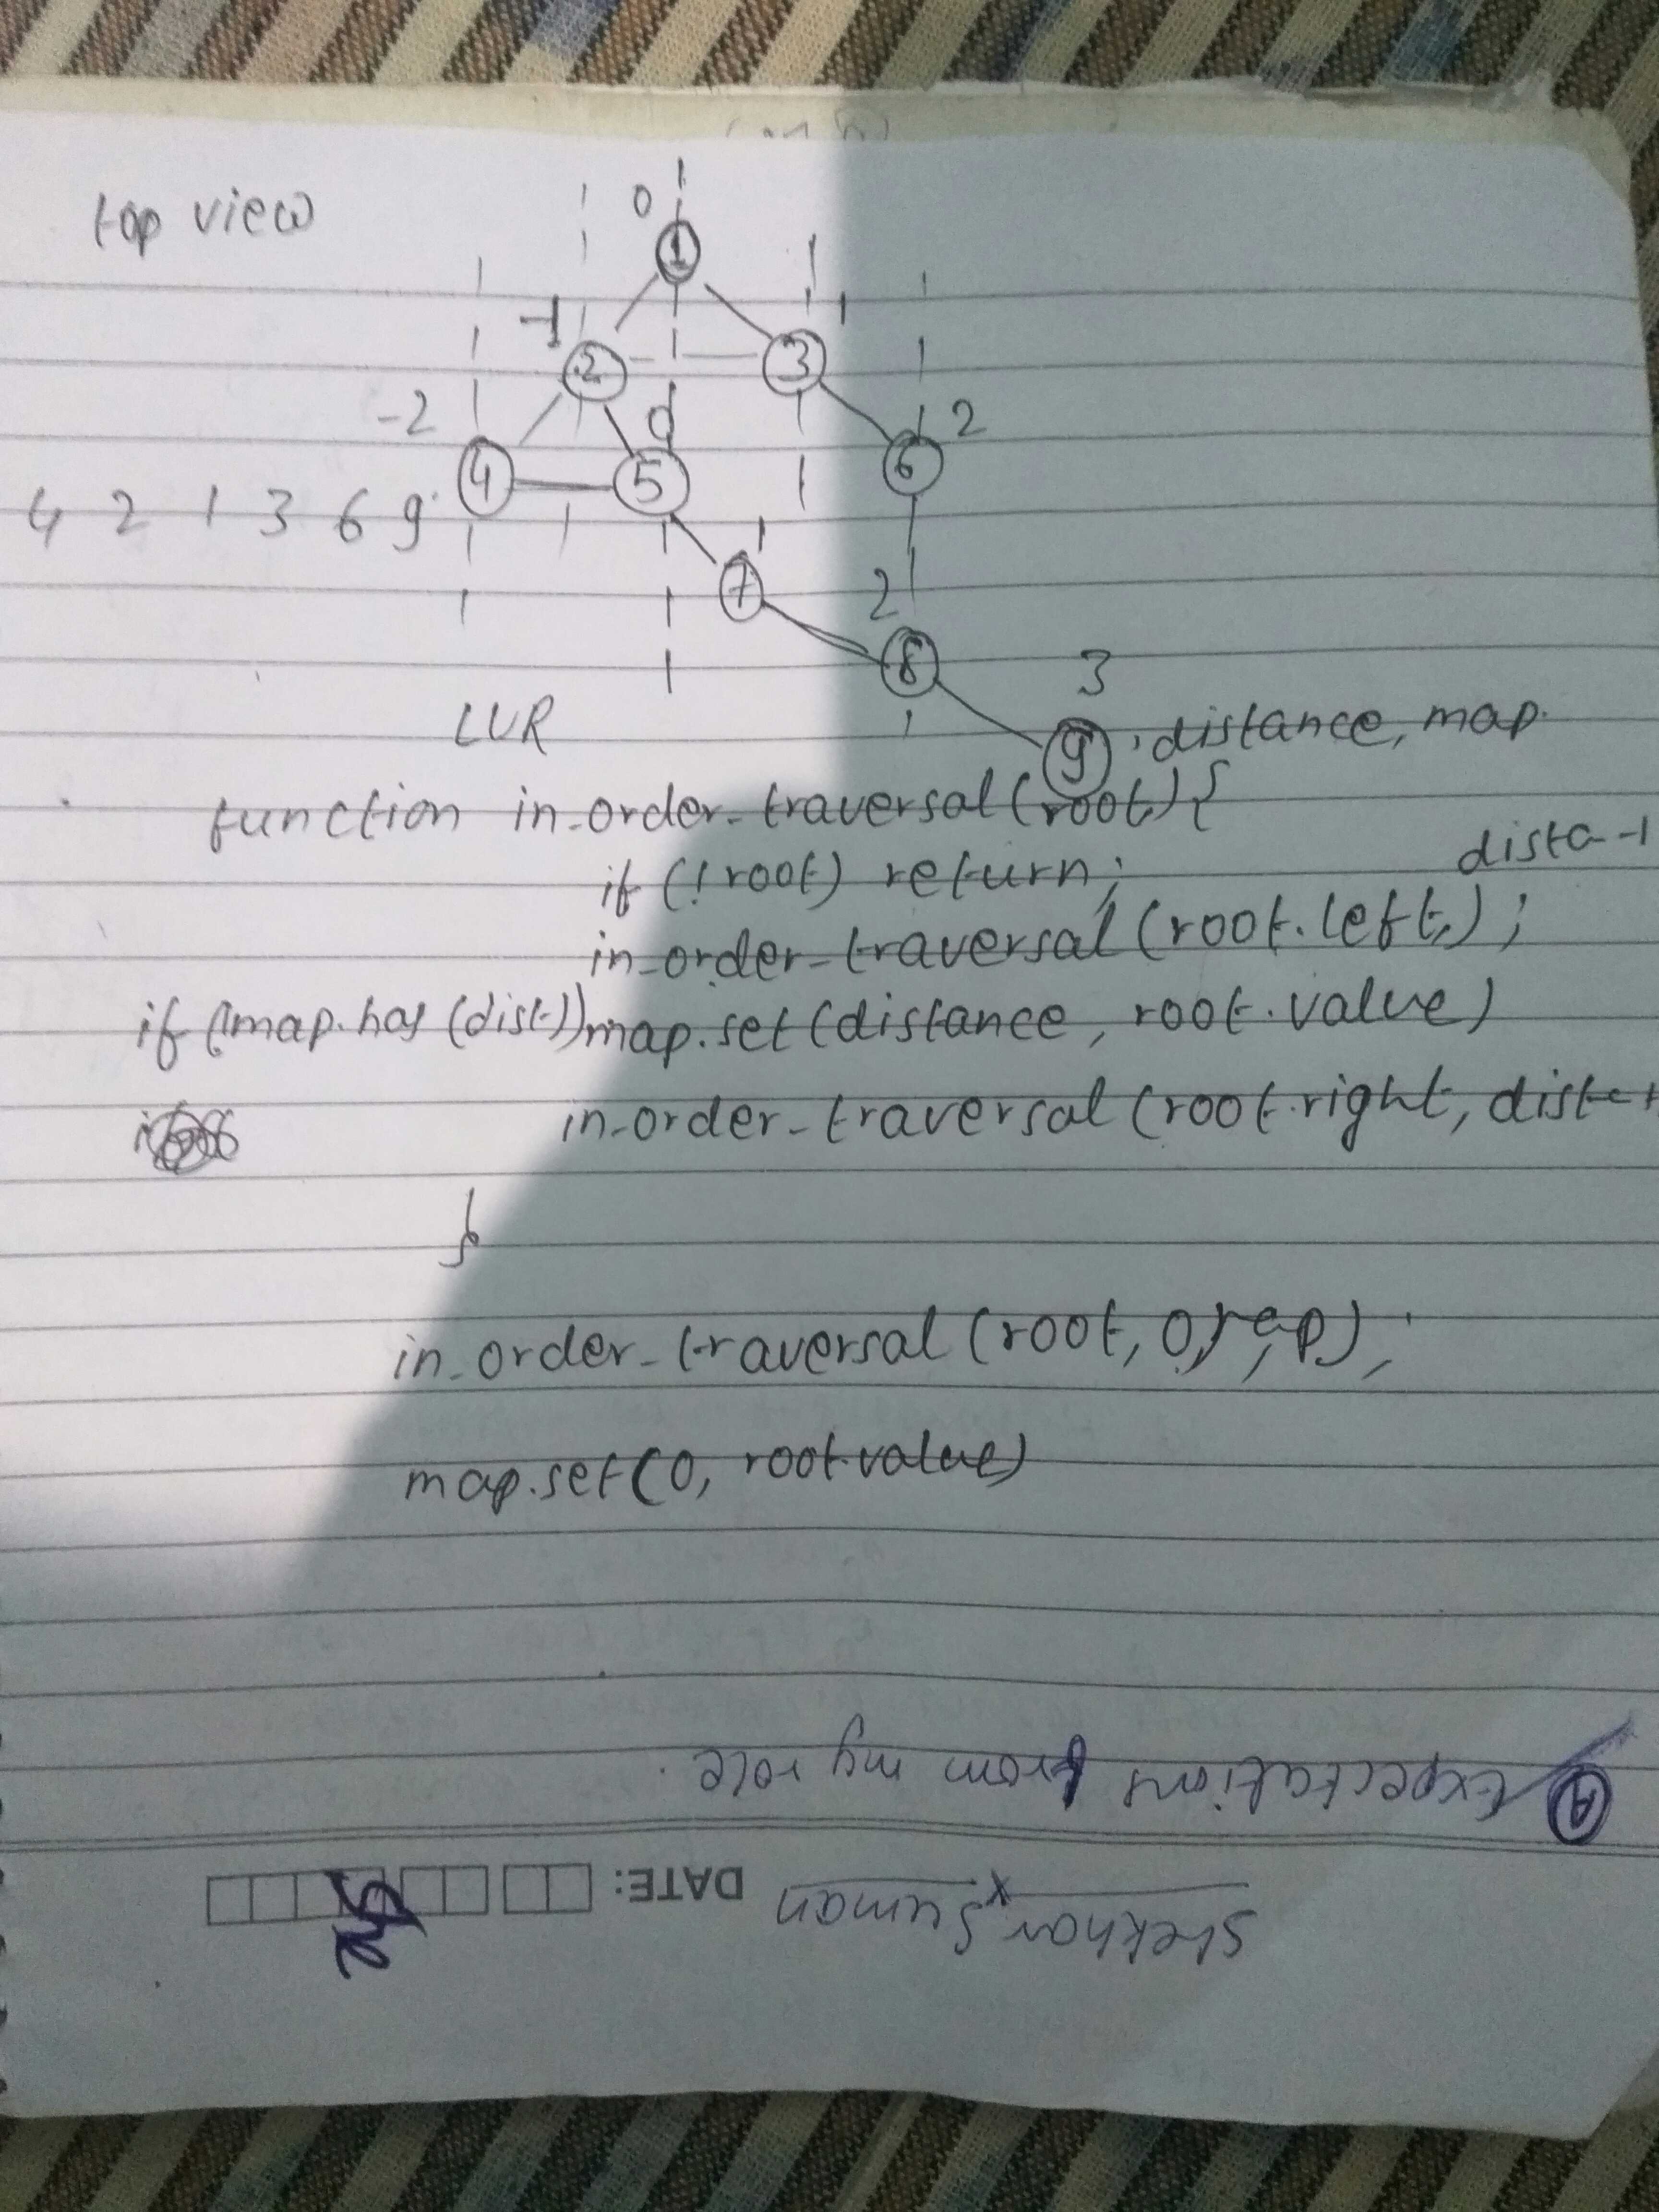 top view
0
1
-1 1
2 3
-2 0 2
4 5 6
4 2 1 3 6 9
1
7
2
8
3
LVR
9 , distance, map.
function in-order-traversal (root) {
if (!root) return;
dista-1
in-order-traversal (root.left,);
if (!map.has (dist)) map.set (distance, root.value)
in-order-traversal (root.right, dist
}
in-order-traversal (root, 0,
map.set (0, root.value)
A Expectations from my role.
Shekhar Suman DATE: